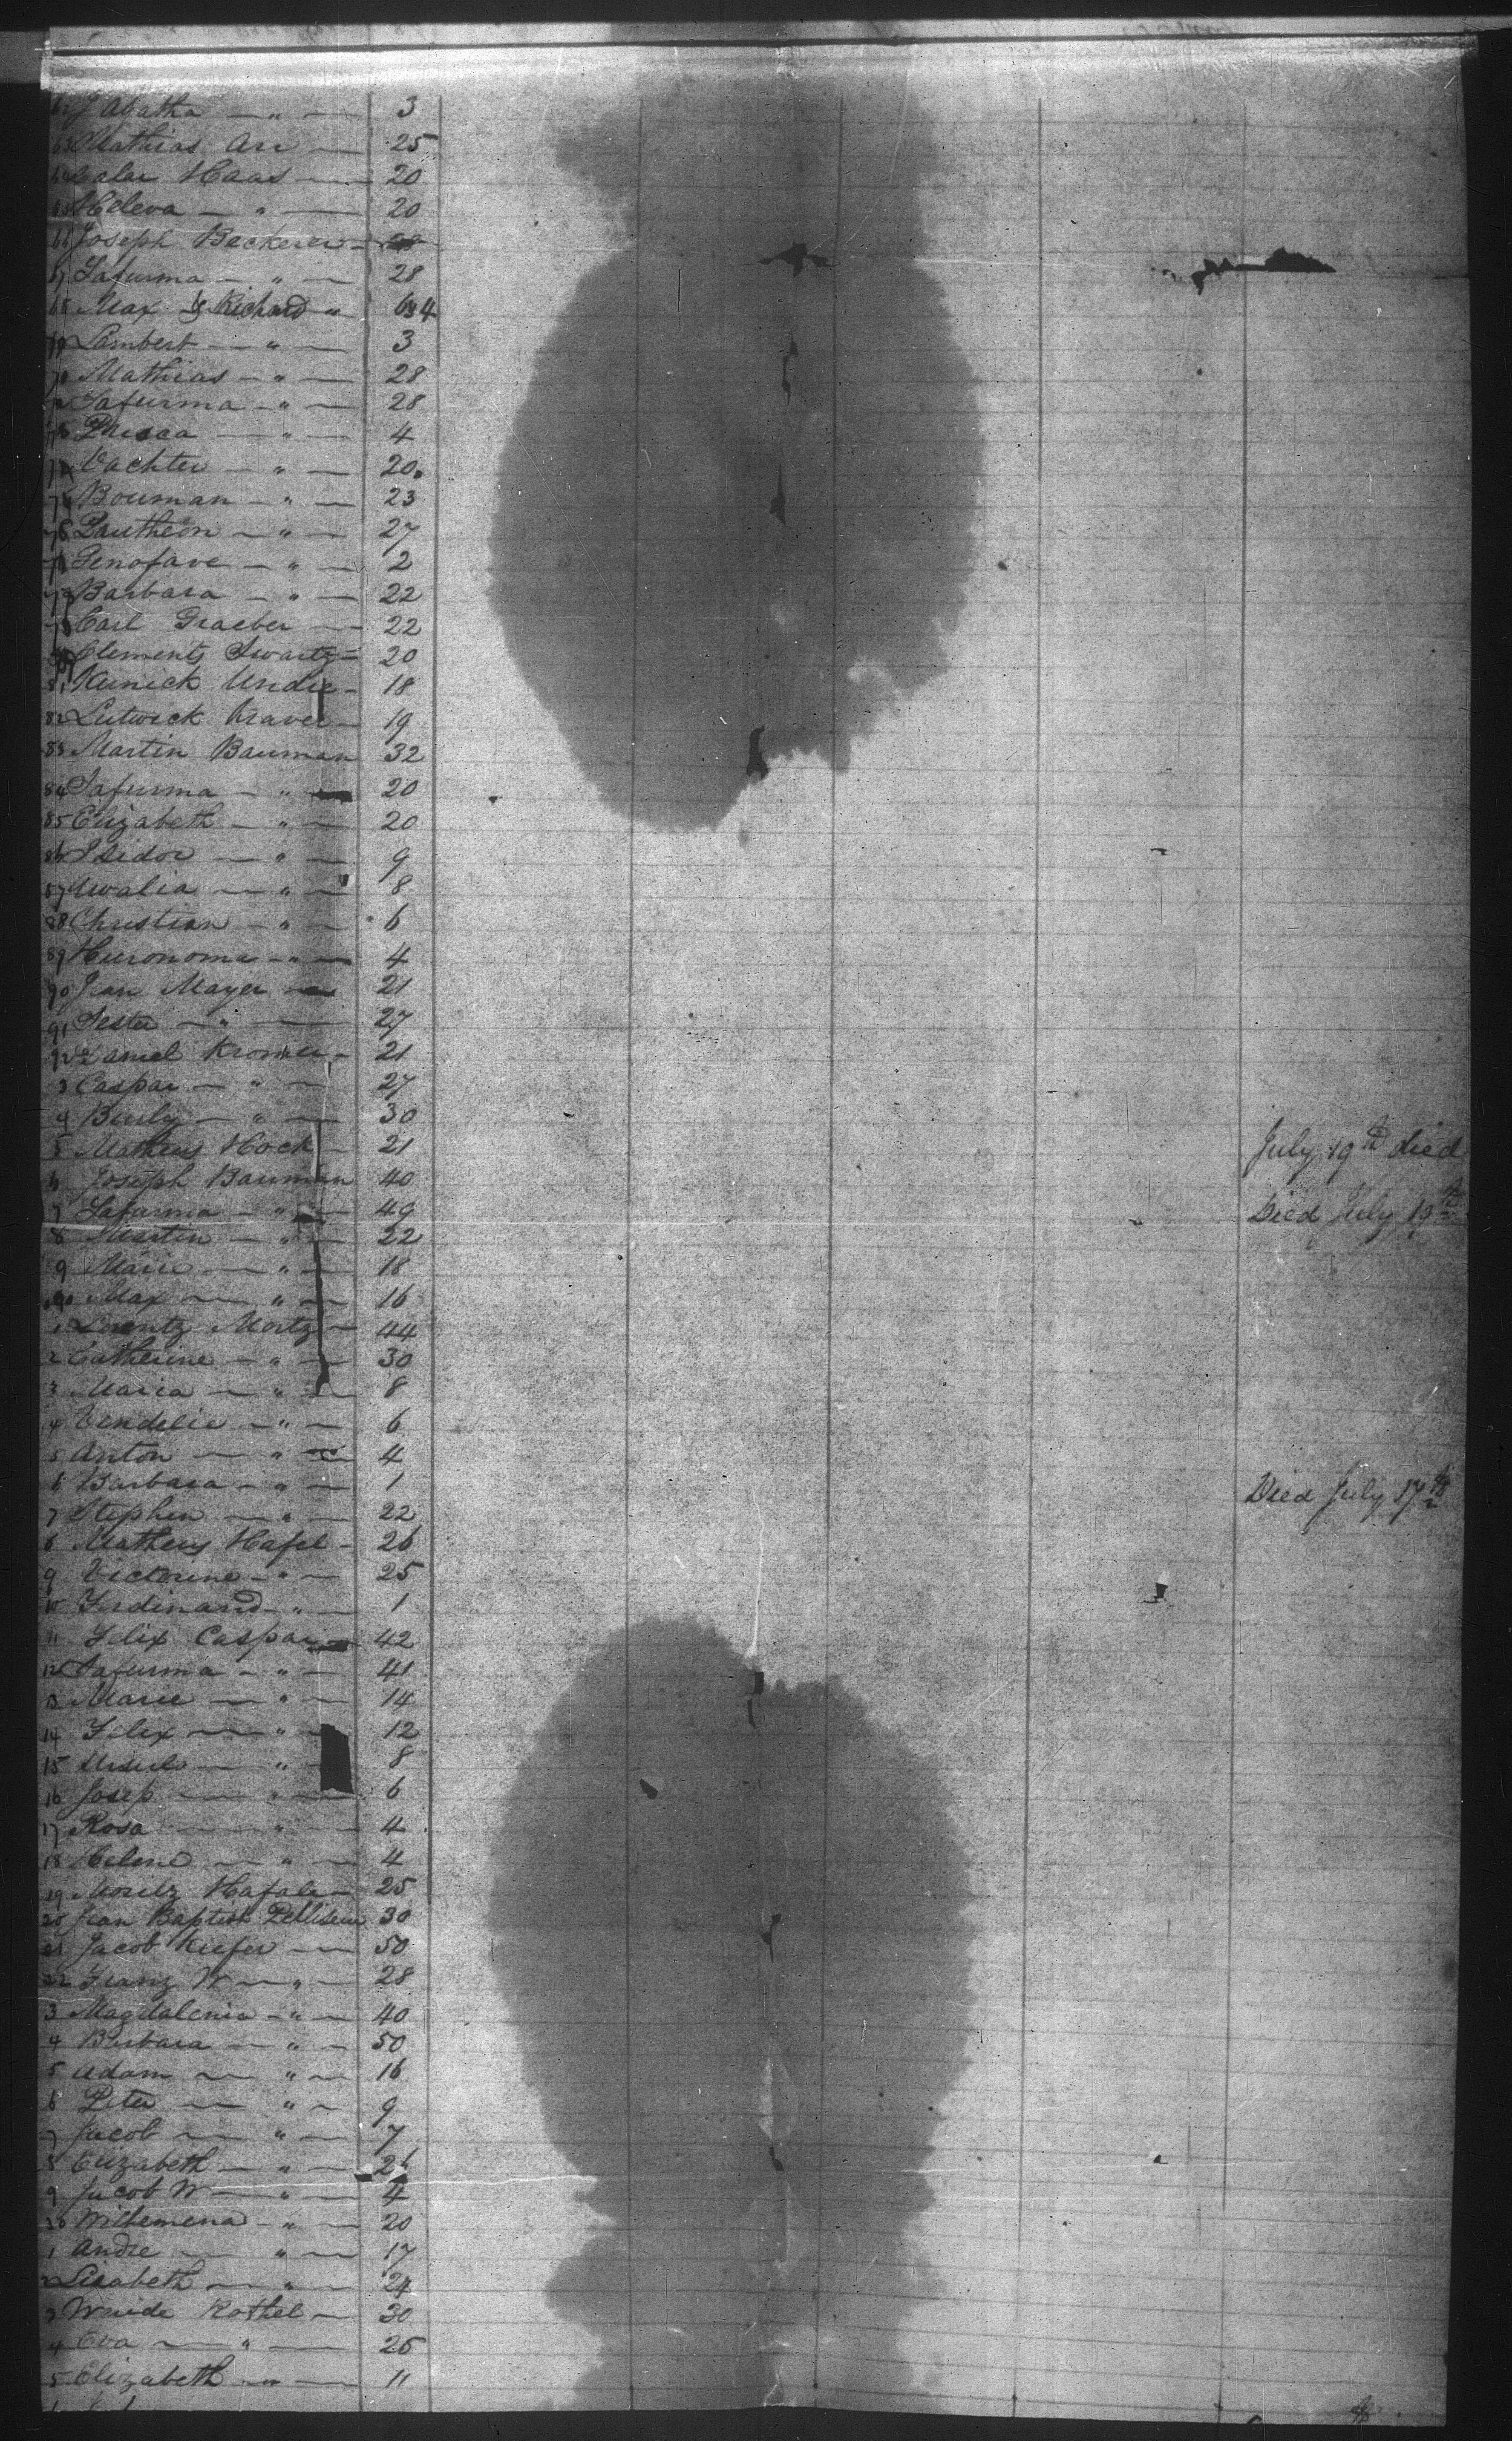 Agatha — " — 3
63 Mathias Arn — 25
64 Haas — 20
65 Heleva — " — 20
66 Joseph Beckerer —
67 Safurma — " — 28
68 Max & Richard " 6 & 4
69 Lambert — " — 3
70 Mathias — " — 28
Safurma — " — 28
Prisca — " — 4
Vachter — " — 20
Bouman — " — 23
Pantheon — " — 27
Genofave — " — 2
Barbara — " — 22
Carl Graeber — 22
Clements Swartz — 20
81 Kunick — 18
82 Lutwick Kraver — 19
83 Martin Bauman 32
84 Safurma — " — 20
85 Elizabeth — " — 20
86 Isidor — " — 9
87 Awalia — " — 8
88 Christian — " — 6
89 Huronoma — " — 4
90 Jean Mayer — 21
91 Sester — " — 27
92 Daniel Kromer — 21
3 Caspar — " — 27
4 — " — 30
5 Matheus Hock — 21 July 19th died
6 Joseph Bauman 40
7 Safurma — " — 49 Died July 13th
8 Martin — " — 22
9 Marie — " — 18
Max — " — 16
1 Lorentz Mortz — 44
2 Catherine — " — 30
3 Maria — " — 8
4 Vendelie — " — 6
5 Anton — " — 4
6 Barbara — " — 1 Died July 17th
7 Stephen — " — 22
8 Matheus Hafel — 26
9 Victorine — " — 25
10 Ferdinand — " — 1
11 Felix Caspar — 42
12 Safurma — " — 41
13 Marie — " — 14
14 Felix — " — 12
15 Ursule — " — 8
16 Josep — " — 6
17 Rosa — " — 4
18 Helene — " — 4
19 Moritz Hafale — 25
20 Jean Baptist 30
21 Jacob Kiefer — 50
22 Franz W — " — 28
3 Magdalenia — " — 40
4 Barbara — " — 50
5 Adam — " — 16
6 Peter — " — 9
7 Jacob — " — 7
8 Elizabeth — " — 26
9 Jacob W — " — 4
30 Wilhemena — " — 20
1 Andre — " — 17
2 Lisabeth — " — 24
3 Rothel — 30
4 Eva — " — 25
5 Elizabeth — " — 11